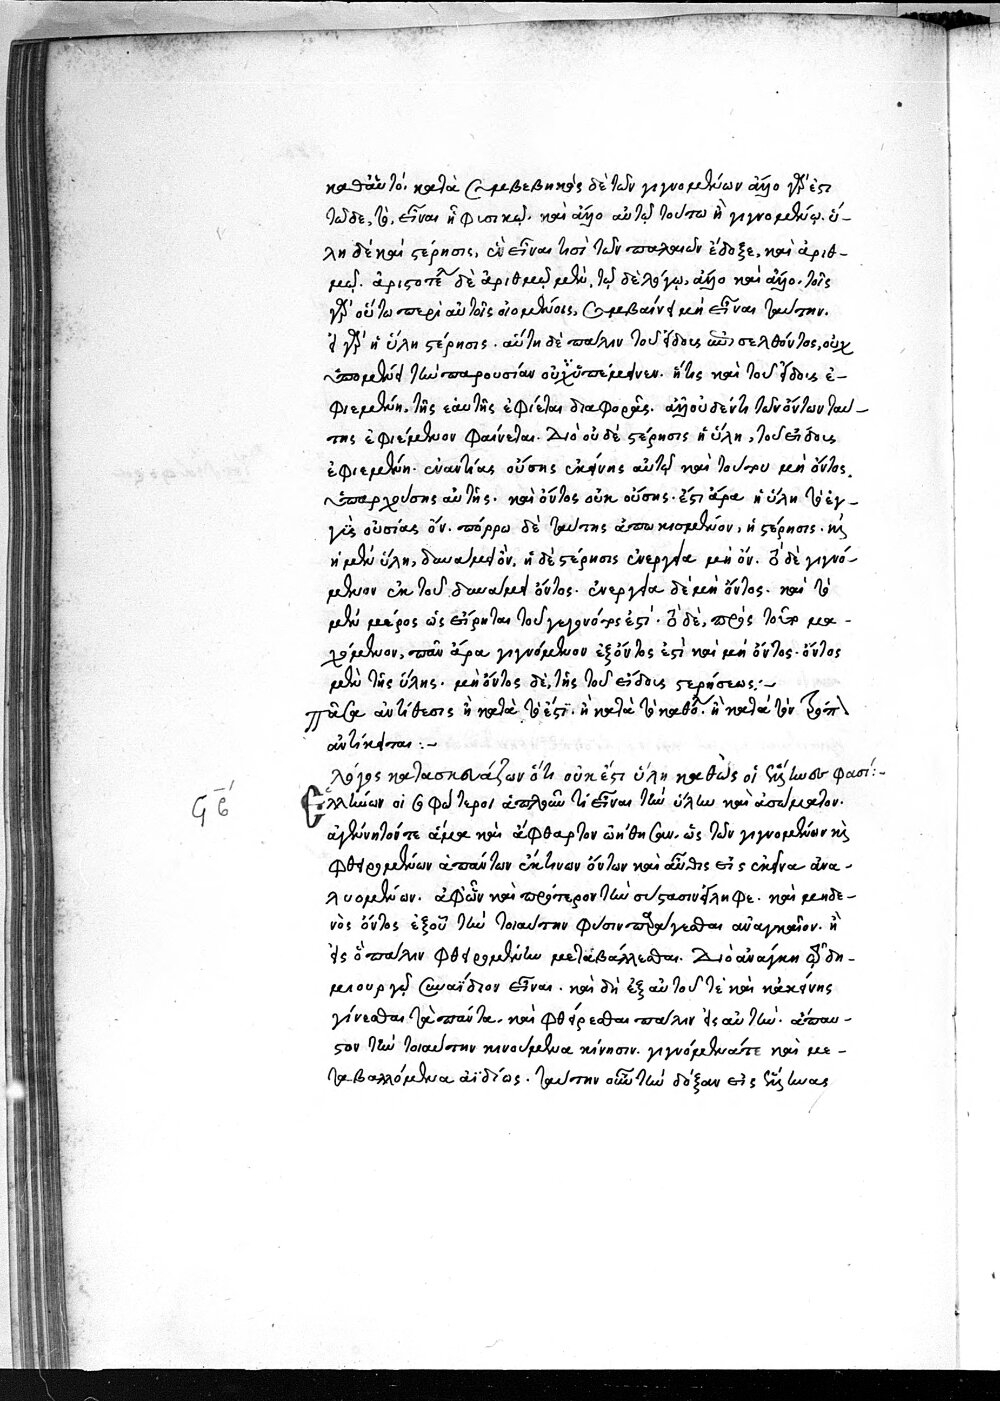 καθαὑτό. κατὰ συμβεβηκὸς δὲ τῶν γιγνομένων ἄλλο γάρ ἐστι
τῷδε, τὸ, εἶναι ἢ φυσικῷ. καὶ ἄλλο αὐτῷ τούτω ἢ γιγνομένῳ. ὕ-
λη δὲ καὶ στέρησις, ἓν εἶναι τισὶ τῶν παλαιῶν ἔδοξε, καὶ ἀριθ-
μῷ. ἀριστοτέλει δὲ ἀριθμῷ μὲν, τῷ δὲ λόγῳ, ἄλλο καὶ ἄλλο. τοῖς
γὰρ οὕτω περὶ αὐτοῖς οἰομένοις, συμβαίνει μὴ εἶναι ταύτην.
εἰ γὰρ ἡ ὕλη στέρησις. αὕτη δὲ πάλιν τοῦ εἴδους εἰσελθόντος, οὐχ
ὑπομένει τὴν παρουσίαν οὐχ ὑπέμεινεν. ἥτις καὶ τοῦ εἴδους ἐ-
φιεμένη, τῆς ἑαυτῆς ἐφίεται διαφορᾶς. ἀλλ' οὐδέν τι τῶν ὄντων ταύ-
της ἐφιέμενον φαίνεται. Διὸ οὐδὲ στέρησις ἡ ὕλη, τοῦ εἴδους
ἐφιεμένη. ἐναντίας οὔσης ἐκείνης αὐτῷ καὶ τούτου μὴ ὄντος,
ὑπαρχούσης αὐτῆς. καὶ ὄντος οὐκ οὔσης. ἔστι ἄρα ἡ ὕλη τὸ ἐγ-
γὺς οὐσίας ὄν. πόρρω δὲ ταύτης ἀπωκισμένον, ἡ στέρησις. καὶ
ἡ μὲν ὕλη, δυνάμει ὄν, ἡ δὲ στέρησις ἐνεργεία μὴ ὄν. τὸ δὲ γιγνό-
μενον ἐκ τοῦ δυνάμει ὄντος. ἐνεργεία δὲ μὴ ὄντος. καὶ τὸ
μὲν μέρος ὡς εἴρηται τοῦ γεγονότος ἐστί. τὸ δὲ, πρὸς τοῦτο μα-
χόμενον, πᾶν ἄρα γιγνόμενον ἐξ ὄντος ἐστὶ καὶ μὴ ὄντος. ὄντος
μὲν τῆς ὕλης. μὴ ὄντος δὲ, τῆς τοῦ εἴδους στερήσεως:~
Πᾶσα ἀντίθεσις ἢ κατὰ τὸ ἔστι. ἢ κατὰ τὸ καθό. ἢ κατὰ τὸν τρόπον
ἀντίκειται:~
Λόγος κατασκευάζων ὅτι οὐκ ἔστι ὕλη καθὼς οἱ ἕλληνες φασί:~
ϛβ
Ἑλλήνων οἱ σοφώτεροι ἁπλοῦν τί εἶναι τὴν ὕλην καὶ ἀσώματον.
ἀγένητόν τε ἅμα καὶ ἄφθαρτον ὠήθησαν. ὡς τῶν γιγνομένων καὶ
φθειρομένων ἁπάντων ἐκείνων ὄντων καὶ αὖθις εἰς ἐκεῖνα ἀνα-
λυομένων. ἀφ' ὧν καὶ πρότερον τὴν σύστασιν εἴληφε. καὶ μηδε-
νὸς ὄντος ἐξ οὗ τὴν τοιαύτην φύσιν παράγεσθαι ἀναγκαῖον. ἢ
εἰς ὃ πάλιν φθειρομένην μεταβάλλεσθαι. Διὸ ἀνάγκη τῷ δη-
μιουργῷ συναΐδιον εἶναι. καὶ δὴ ἐξ αὐτοῦ τὲ καὶ κἀκείνης
γίνεσθαι τὰ πάντα. καὶ φθείρεσθαι πάλιν εἰς αὐτήν. ἅπαυ-
στον τὴν τοιαύτην κινούμενα κίνησιν. γιγνόμενά τε καὶ με-
ταβαλλόμενα ἀϊδίως. ταύτην οὖν τὴν δόξαν εἰς ἕλληνας